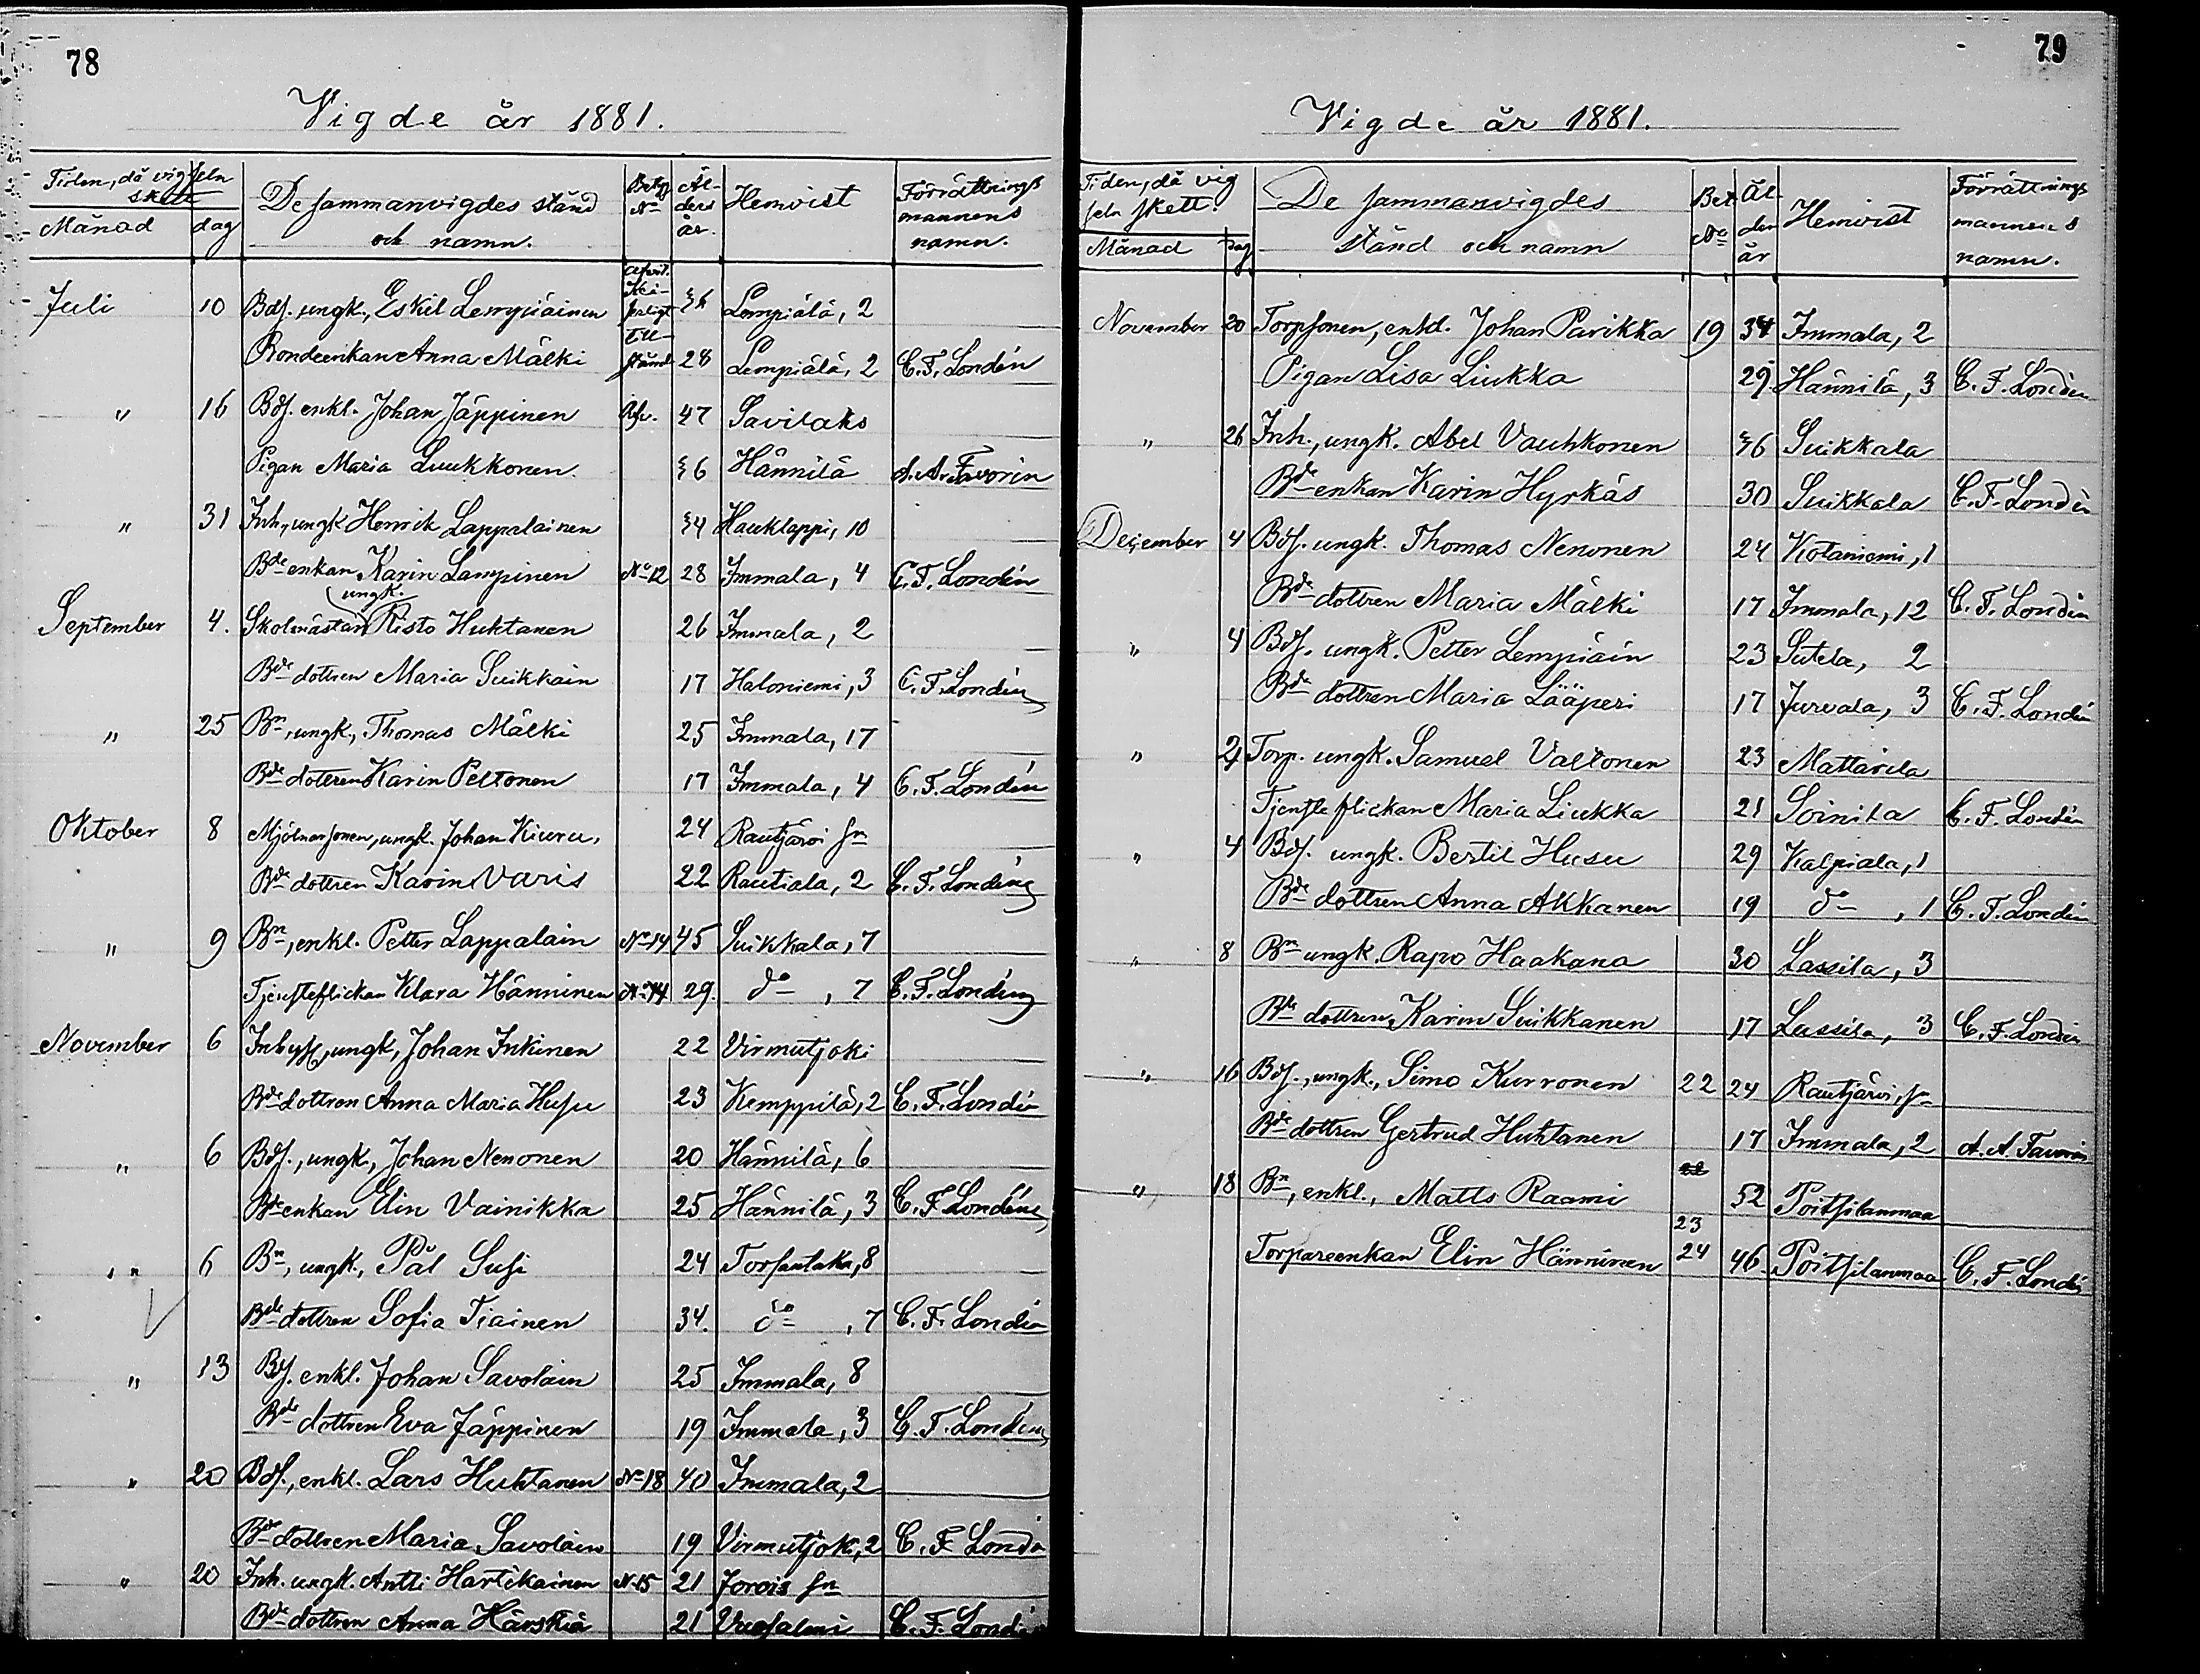 78
Vigde år 1881.
Tiden, då vigseln skett
Månad dag
De sammanvigdes stånd och namn.
Betyg No
Ålders år.
Hemvist
Förrättningsmannens namn.
Juli 10 Bds. ungk., Eskil Lempiäinen Lempiälä, 2
Bondeenkan Anna Mälki 28 Lempiälä, 2 C. F. Londén
" 16 Bds. enkl. Johan Jäppinen Afsk. 47 Savilaks
Pigan Maria Luukkonen 36 Hännilä A. A. Favorin
" 31 Inh., ungk Henrik Lappalainen 34 Hauklappi, 10
Bde enkan Karin Lampinen No 12 28 Immala, 4 C. F. Londén
ungk.
September 4. Skolmästaren Risto Huhtanen 26 Immala, 2
Bde dottren Maria Suikkain 17 Haloniemi, 3 C. F. Londén
" 25 Bn, ungk., Thomas Mälki 25 Immala, 17
Bde dottren Karin Peltonen 17 Immala, 4 C. F. Londén
Oktober 8 Mjölnarsonen, ungk. Johan Kiuru, 24 Rautjärvi sn
Bde dottren Karin Varis 22 Rautiala, 2 C. F. Londén
" 9 Bn, enkl. Petter Lappalain No 14 45 Suikkala, 7
Tjensteflickan Klara Hänninen No 14 29. do , 7 C. F. Londén
November 6 Inhys, ungk, Johan Inkinen 22 Virmutjoki
Bde dottren Anna Maria Husu 23 Kemppilä, 2 C. F. Londén
" 6 Bds., ungk, Johan Nenonen 20 Hännilä, 6
Bde enkan Elin Vainikka 25 Hännilä, 3 C. F. Londén
" 6 Bn, ungk., Pål Susi 24 Torsantaka, 8
Bde dottren Sofia Tiainen 34. do , 7 C. F. Londén
" 13 Bds. enkl. Johan Savolain 25 Immala, 8
Bde dottren Eva Jäppinen 19 Immala, 3 C. F. Londén
" 20 Bds., enkl. Lars Huhtanen No 18 40 Immala, 2
Bde dottren Maria Savolain 19 Virmutjok, 2 C. F. Londén
" 20 Inh. ungk. Antti Hartikainen No 15 21 Jorois sn
Bde dottren Anna Härskiä 21 Vuosalmi C. F. Londén
79
Vigde år 1881.
Tiden, då vigseln skett.
Månad dag
De sammanvigdes stånd och namn
Bet No
Ålder år
Hemvist
Förrättningsmannens namn.
November 20 Torpsonen, enkl. Johan Parikka 19 34 Immala, 2
Pigan Lisa Liukka 29 Hännilä, 3 C. F. Londén
" 26 Inh., ungk. Abel Vauhkonen 36 Suikkala
Bde enkan Karin Hyrkäs 30 Suikkala C. F. Londén
December 4 Bds. ungk. Thomas Nenonen 24 Kotaniemi, 1
Bde dottren Maria Mälki 17 Immala, 12 C. F. Londén
" 4 Bds. ungk. Petter Lempiäin 23 Sutela, 2
Bde dottren Maria Lääperi 17 Jurvala, 3 C. F. Londén
" 4 Torp. ungk. Samuel Valtonen 23 Mattarila
Tjensteflickan Maria Liukka 21 Soinila C. F. Londén
" 4 Bds. ungk. Bertil Husu 29 Kalpiala, 1
Bde dottren Anna Akkanen 19 do , 1 C. F. Londén
" 8 Bn ungk. Rapo Haakana 30 Lassila, 3
Bde dottren Karin Suikkanen 17 Lassila, 3 C. F. Londén
" 16 Bds., ungk., Simo Kurronen 22 24 Rautjärvi, sn
Bde dottren Gertrud Huhtanen 17 Immala, 2 A. A. Favorin
" 18 Bn, enkl., Matts Raami 23 52 Poitsilanmaa
Torpareenkan Elin Hänninen 24 46 Poitsilanmaa C. F. Londén